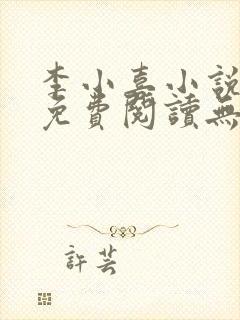 李小嘉小說
免費閱讀無
許芸